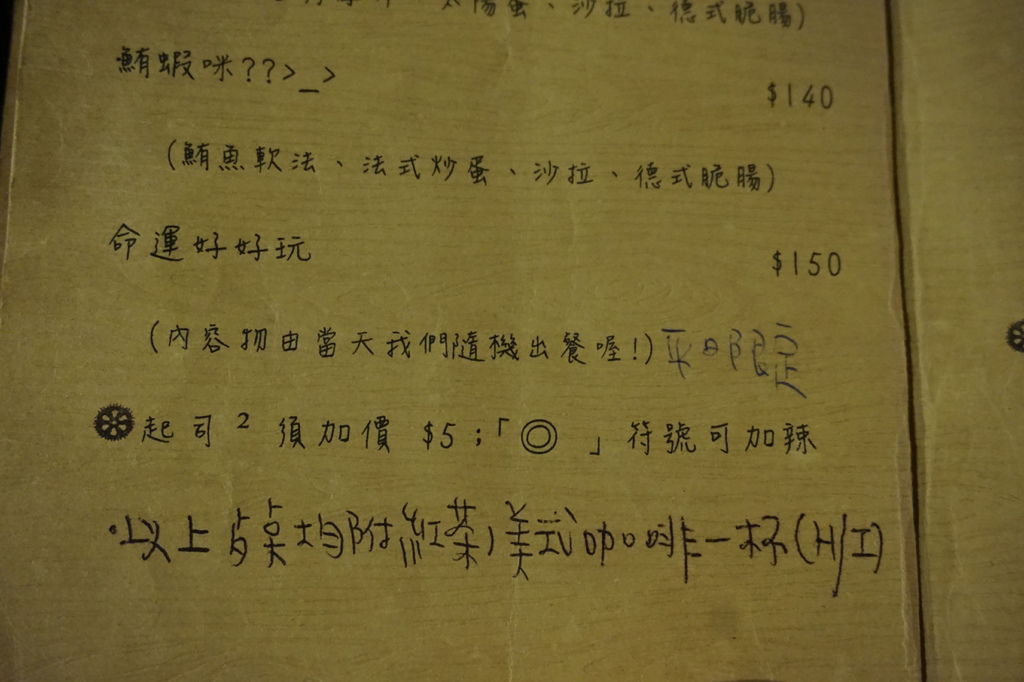 太陽蛋、沙拉、德式脆腸)
鮪蝦咪??>_>
$140
(鮪魚軟法、法式炒蛋、沙拉、德式脆腸)
命運好好玩
$150
(內容物由當天我們隨機出餐喔!)平日限定
起司² 須加價 $5;「◎」符號可加辣
·以上 桌均附紅茶/美式咖啡一杯(H/I)